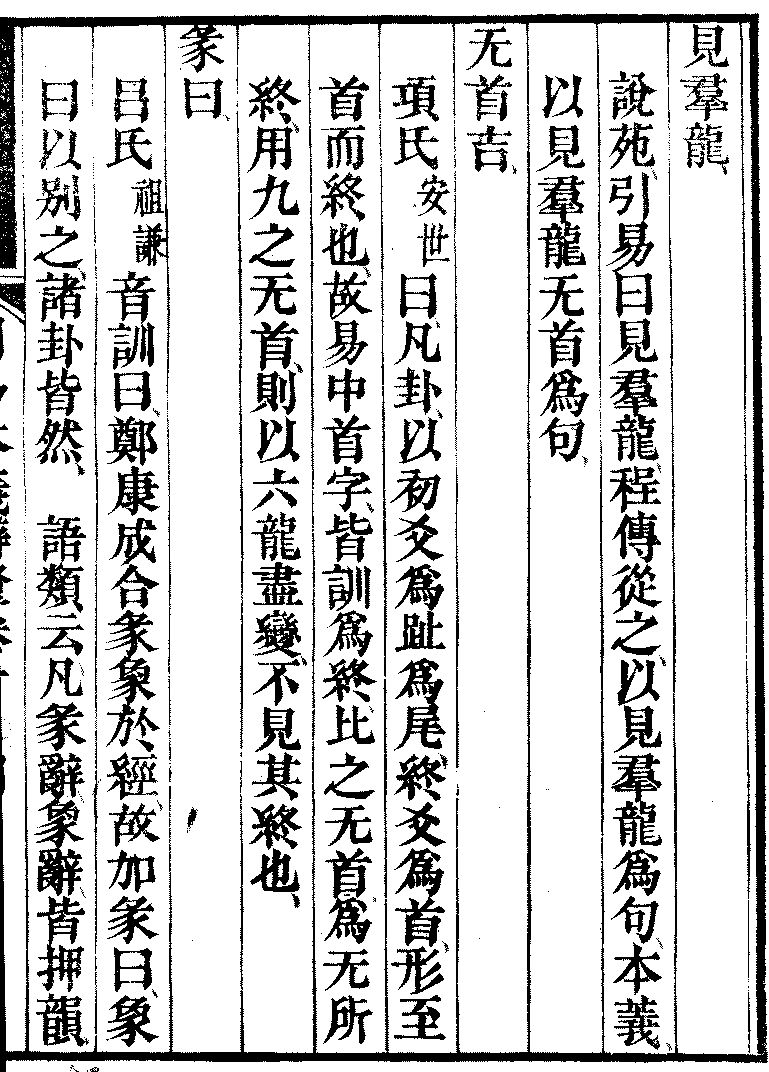 見羣龍、
說苑、引易曰見羣龍、程傳從之、以見羣龍爲句、本義、
以見羣龍无首爲句、
无首吉、
項氏安世曰、凡卦、以初爻爲趾爲尾、終爻爲首、形至
首而終也、故易中首字、皆訓爲終、比之无首、爲无所
終、用九之无首、則以六龍盡變、不見其終也、
彖曰、
呂氏祖謙音訓曰、鄭康成合彖象於經、故加彖曰、象
曰以別之、諸卦皆然、　語類云、凡彖辭象辭、皆押韻、